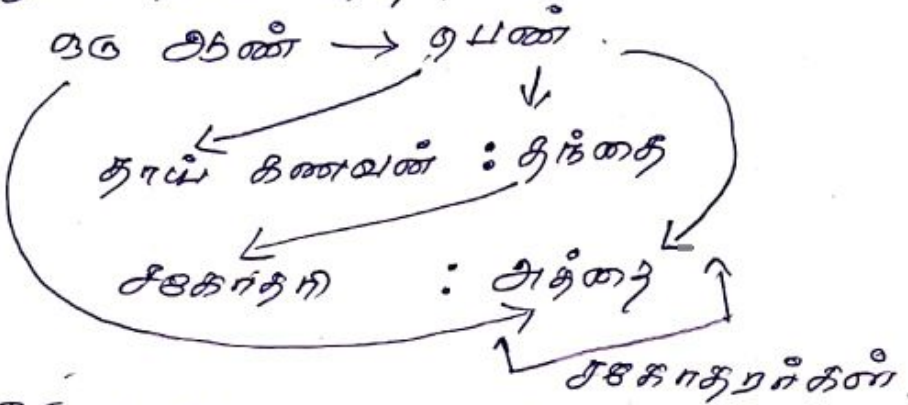 ஒரு ஆண் → பெண்
தாய் கணவன் : தந்தை
சகோதரி : அத்தை
சகோதரர்கள்